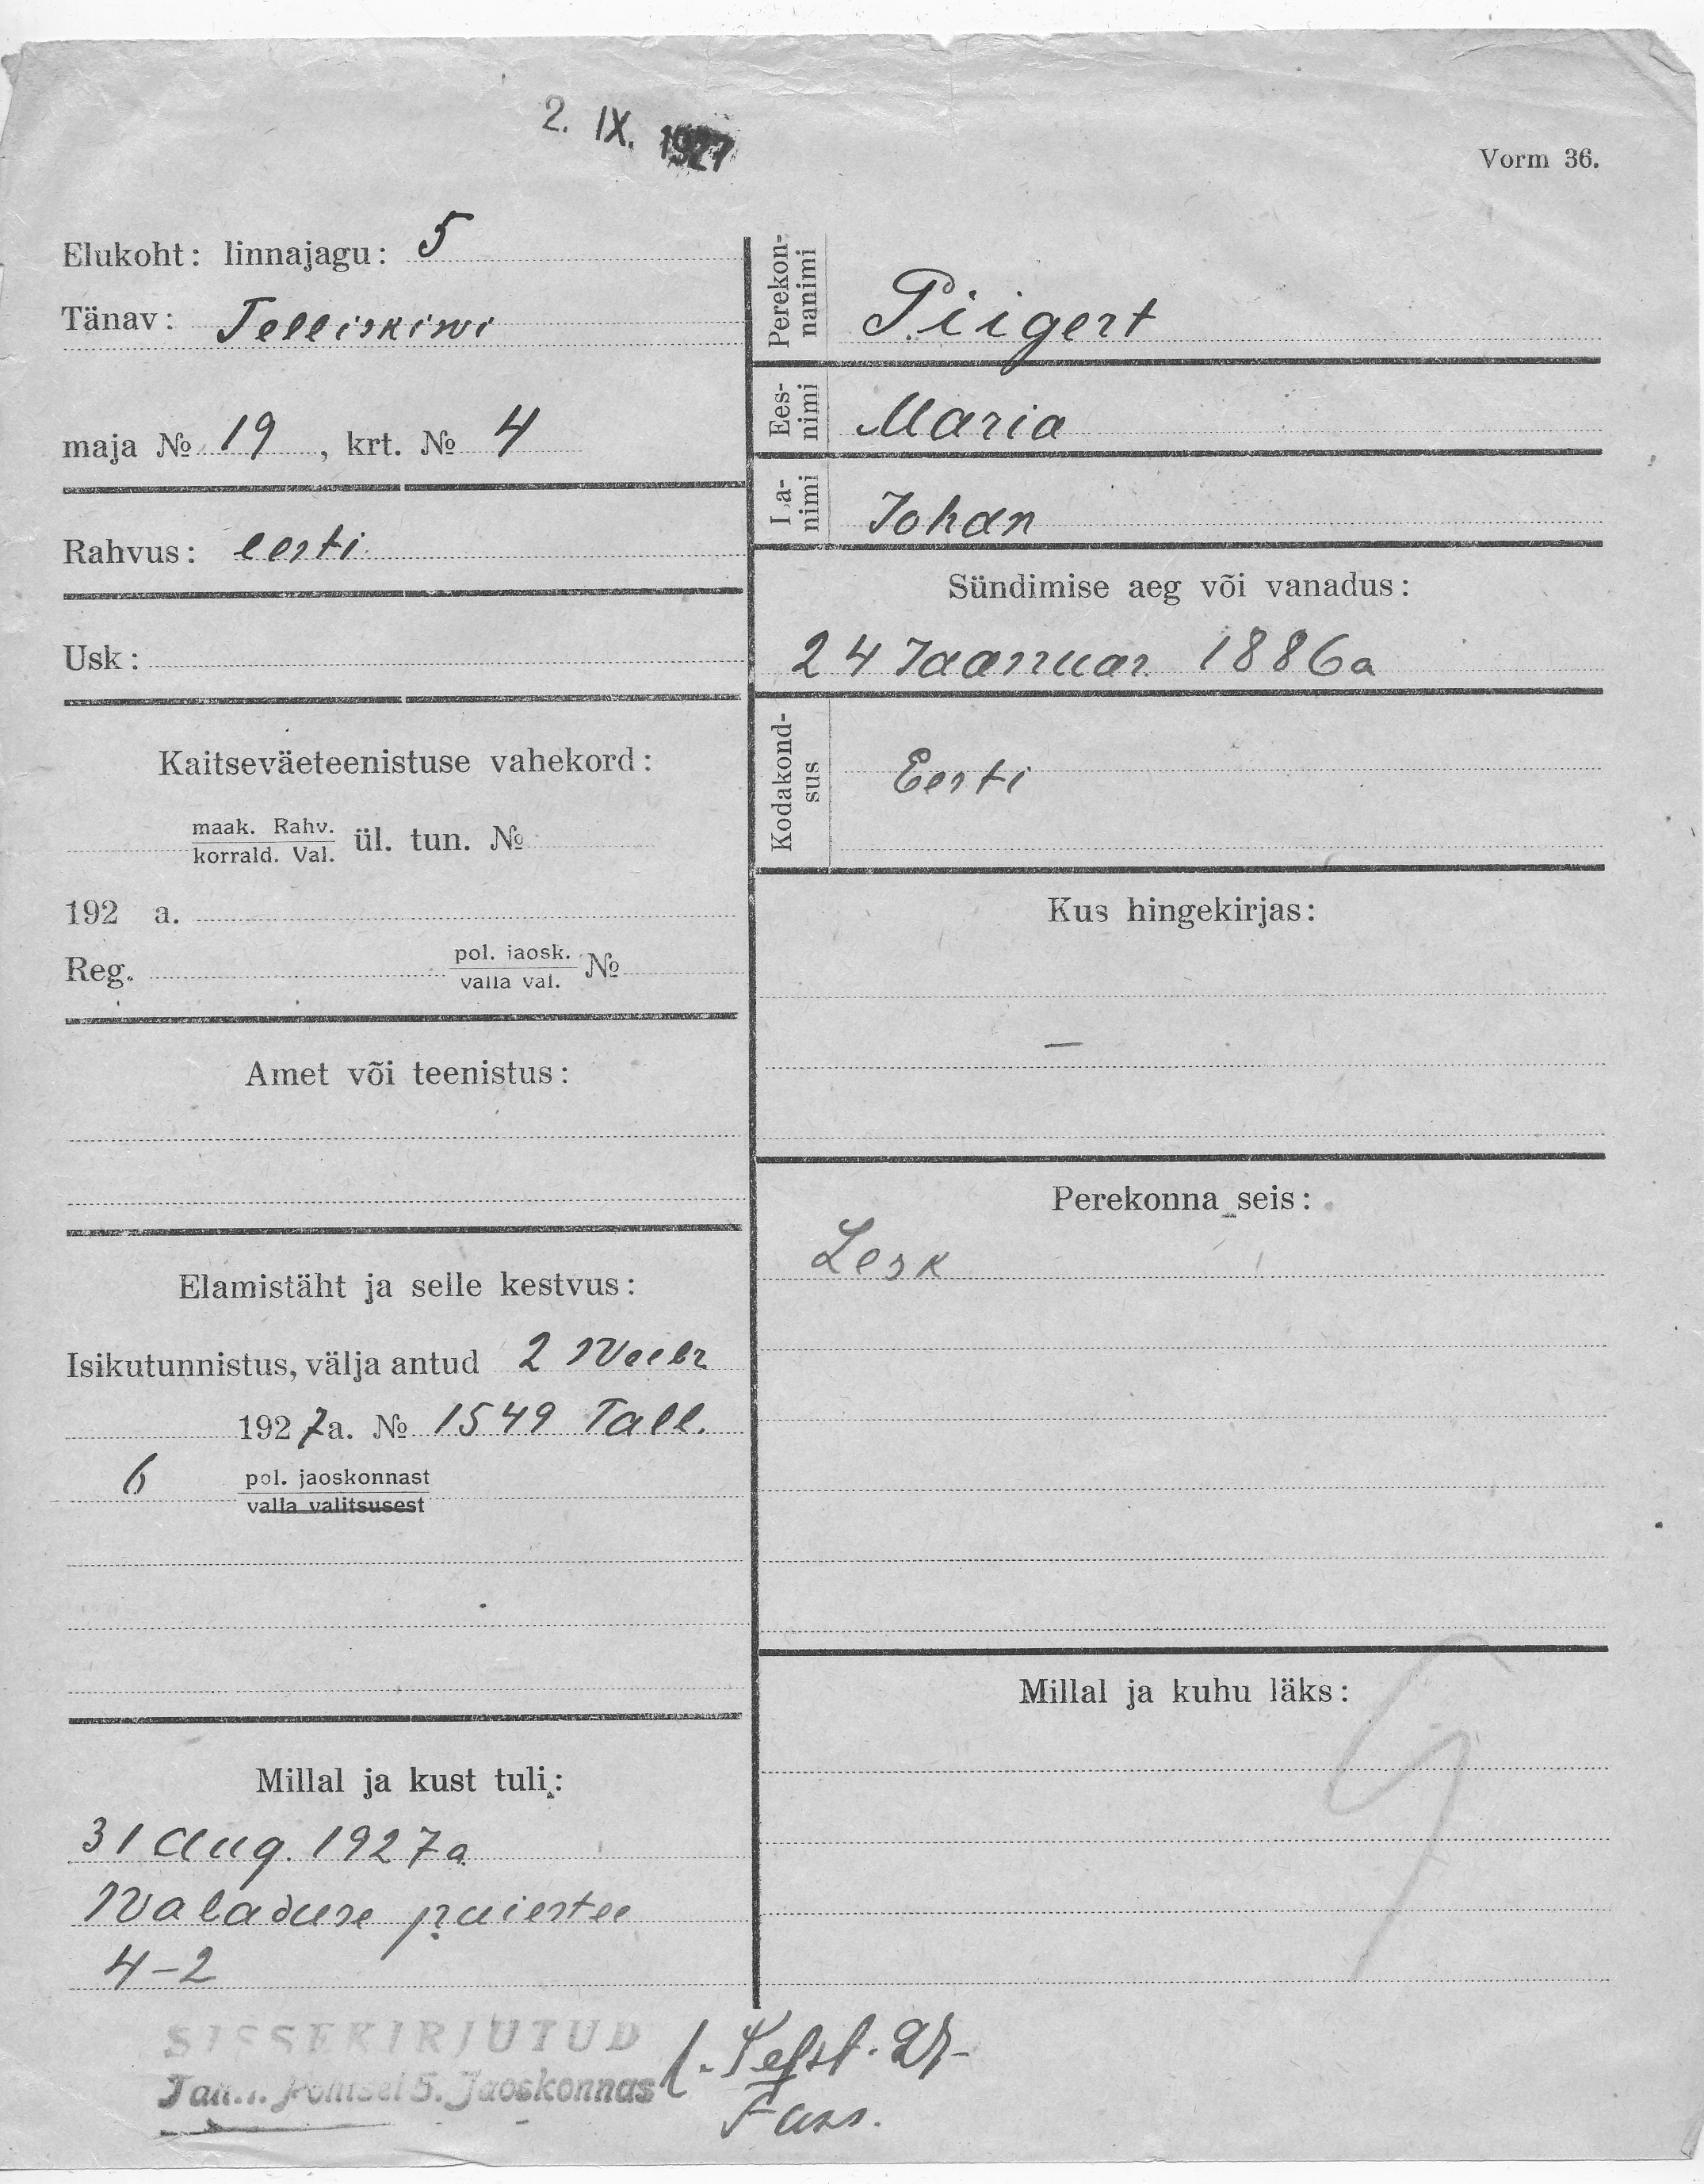 2. IX. 1927
Vorm 36.
Elukoht: linnajagu: 5
Tänav: Telliskiwi
maja № 19, krt. № 4
Rahvus: eesti
Usk:
Kaitseväeteenistuse vahekord:
maak. Rahv.
korrald. Val. ül. tun. №
192 a.
Reg. pol. jaosk. №
valla val.
Amet või teenistus:
Elamistäht ja selle kestvus:
Isikutunnistus, välja antud 2 Veebr
1927a. № 1549 Tall.
6 pol. jaoskonnast
valla valitsusest
Millal ja kust tuli:
31 Aug. 1927a
Wabaduse puiestee
4-2
Perekon-
nanimi Piigert
Ees-
nimi Maria
Isa-
nimi Johan
Sündimise aeg või vanadus:
24 Jaanuar 1886a
Kodakond-
sus Eesti
Kus hingekirjas:
—
Perekonna seis:
Lesk
Millal ja kuhu läks:
SISSEKIRJUTUD
Tall. Politsei 5. Jaoskonnas
1. Sept. 27